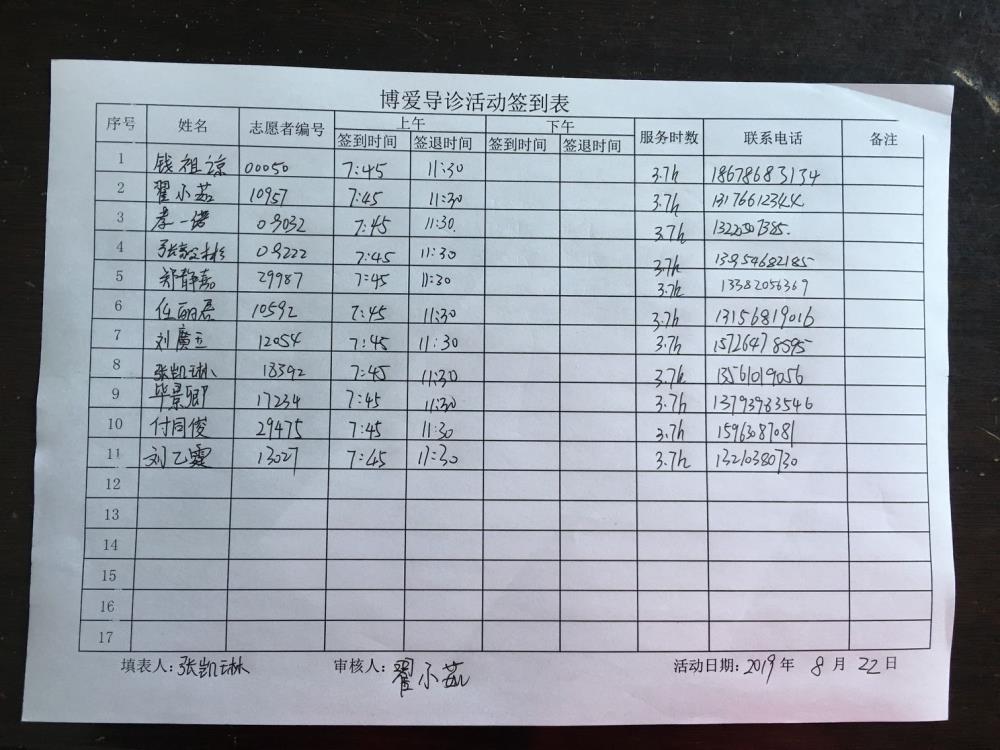 博爱导诊活动签到表
序号 姓名 志愿者编号 上午 下午 服务时数 联系电话 备注
签到时间 签退时间 签到时间 签退时间
1 钱祖谅 00050 7:45 11:30 3.7h 18678683134
2 翟小茹 10957 7:45 11:30 3.7h 13176612344
3 李一诺 09032 7:45 11:30 3.7h 13220507385
4 09222 7:45 11:30 3.7h 13954682185
5 郑静嘉 29987 7:45 11:30 3.7h 13382056367
6 任丽磊 10592 7:45 11:30 3.7h 13156819016
7 刘廣玉 12054 7:45 11:30 3.7h 15726478595
8 张凯琳 18392 7:45 11:30 3.7h 13561019056
9 毕景卿 17234 7:45 11:30 3.7h 13793983546
10 付同俊 29475 7:45 11:30 3.7h 15963087081
11 刘乙霆 13027 7:45 11:30 3.7h 13210380730
12
13
14
15
16
17
填表人:张凯琳 审核人:翟小茹 活动日期:2019年 8月 22日